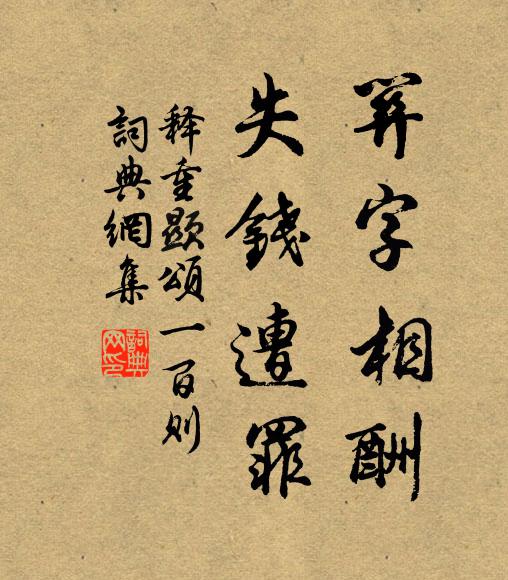 關字相酬
失錢遭罪
释重顯頌一百则
詞典網集
詞典网印